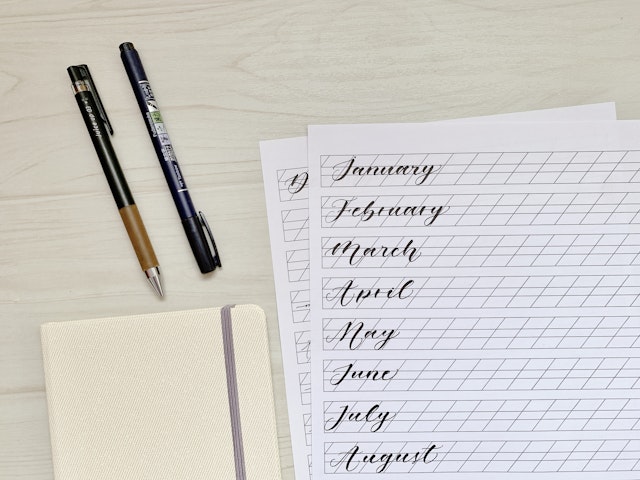 January
February
March
April
May
June
July
August
D